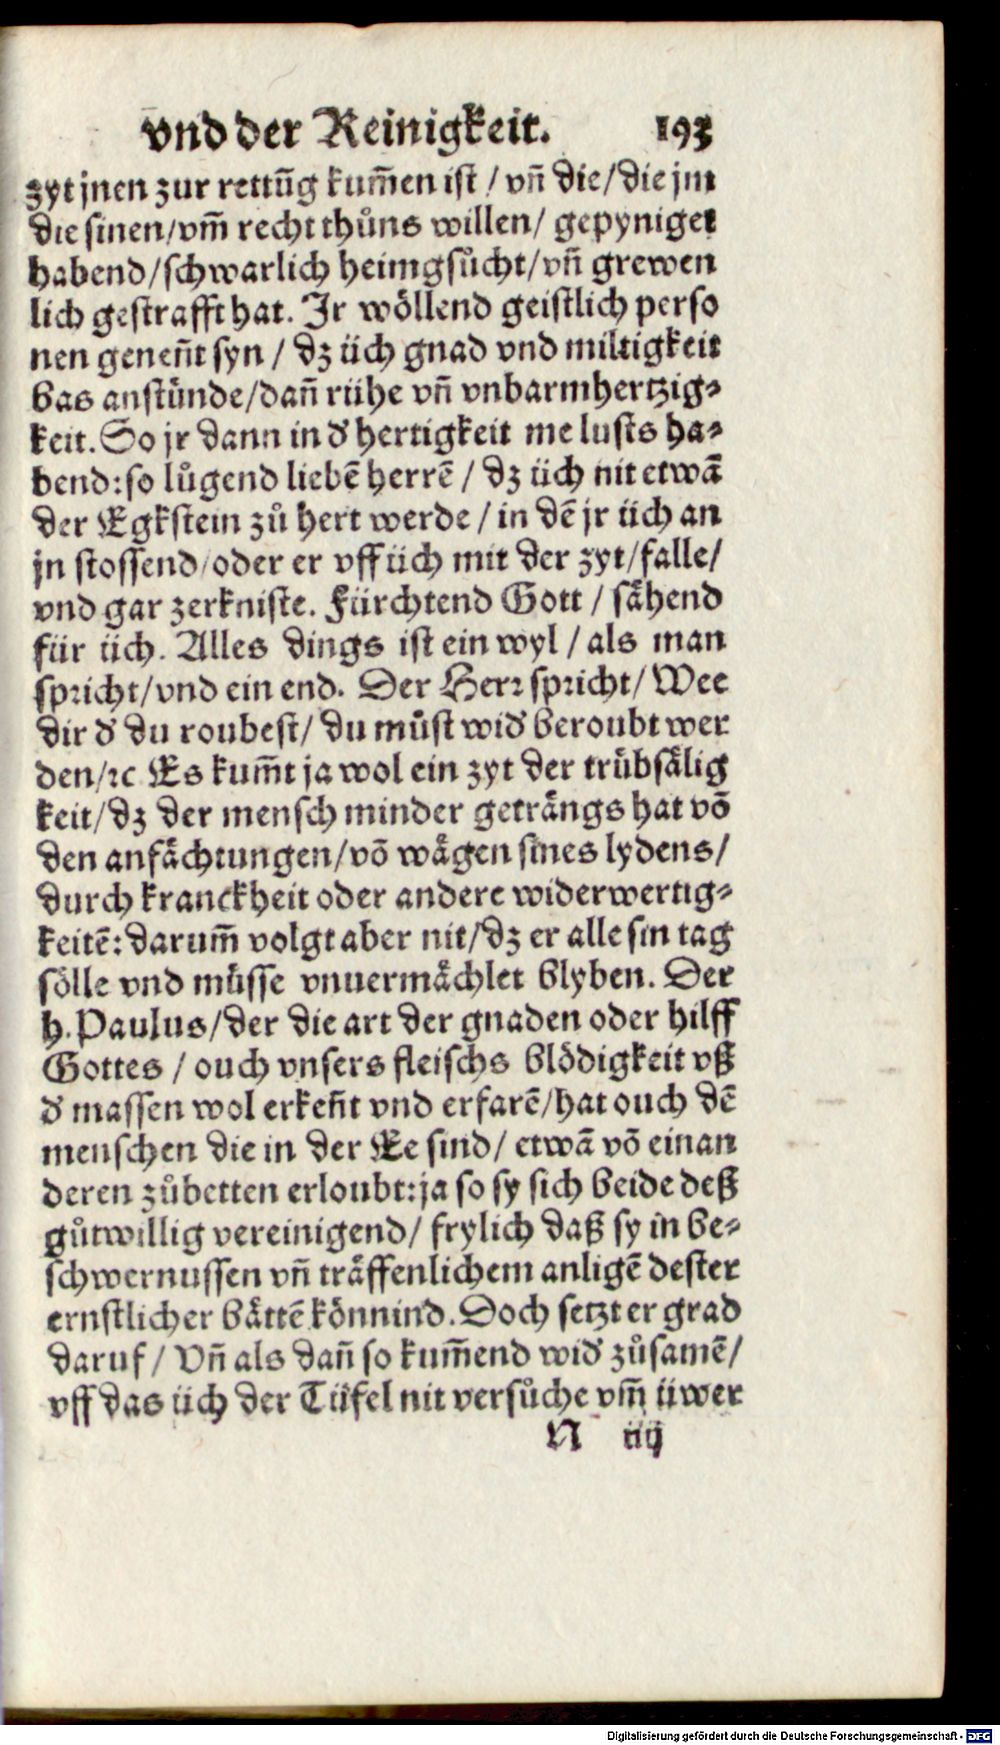 vnd der Reinigkeit. 193
zyt jnen zur rettũg kum̃en ist / vñ die/die jm
die sinen/vm̃ recht thůns willen/ gepyniget
habend/schwarlich heimgsůcht/vñ grewen
lich gestrafft hat. Ir wöllend geistlich perso
nen geneñt syn / dz üch gnad vnd miltigkeit
bas anstünde/dañ rühe vñ vnbarmhertzig⸗
keit. So jr dann in d' hertigkeit me lusts ha⸗
bend: so lůgend liebē herrē / dz üch nit etwā
der Egkstein zů hert werde / in dē jr üch an
jn stossend/oder er vff üch mit der zyt/falle/
vnd gar zerkniste. Fürchtend Gott / sähend
für üch. Alles dings ist ein wyl / als man
spricht/vnd ein end. Der Herr spricht/ Wee
dir d' du roubest/ du můst wid' beroubt wer
den/ꝛc Es kum̃t ja wol ein zyt der trübsälig
keit/dz der mensch minder geträngs hat vō
den anfächtungen/vō wägen sines lydens/
durch kranckheit oder andere widerwertig⸗
keitē: darum̃ volgt aber nit/dz er alle sin tag
sölle vnd müsse vnuermächlet blyben. Der
h. Paulus/der die art der gnaden oder hilff
Gottes / ouch vnsers fleischs blödigkeit vß
d' massen wol erkeñt vnd erfarē/hat ouch dē
menschen die in der Ee sind/ etwā vō einan
deren zůbetten erloubt: ja so sy sich beide deß
gůtwillig vereinigend/ frylich daß sy in be⸗
schwernussen vñ träffenlichem anligē dester
ernstlicher bättē könnind. Doch setzt er grad
daruf/ Vñ als dañ so kum̃end wid' zůsamē/
vff das üch der Tüfel nit versůche vm̃ üwer
N iiij
Digitalisierung gefördert durch die Deutsche Forschungsgemeinschaft - DFG